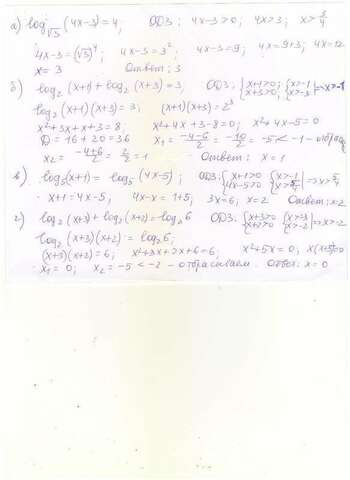 а) log_√3 (4x-3)=4, ОДЗ: 4x-3>0; 4x>3; x>3/4
4x-3=(√3)^4, 4x-3=3^2; 4x-3=9; 4x=9+3; 4x=12
x=3 Ответ: 3
б) log_2 (x+1)+log_2 (x+3)=3; ОДЗ: {x+1>0; x+3>0; {x>-1 x>-3 => x>-1
log_2 (x+1)(x+3)=3; (x+1)(x+3)=2^3
x^2+3x+x+3=8; x^2+4x+3-8=0; x^2+4x-5=0
D=16+20=36 x_1=(-4-6)/2=-10/2=-5<-1-отбрас
x_2=(-4+6)/2=2/2=1 Ответ: x=1
в) log_5(x+1)=log_5(4x-5); ОДЗ: {x+1>0 4x-5>0 {x>-1 x>5/4 => x>5/4
x+1=4x-5, 4x-x=1+5; 3x=6; x=2 Ответ: x=2
г) log_2(x+3)+log_2(x+2)=log_2 6 ОДЗ: {x+3>0 x+2>0 {x>-3 x>-2 => x>-2
log_2(x+3)(x+2)=log_2 6;
(x+3)(x+2)=6; x^2+3x+2x+6=6; x^2+5x=0; x(x+5)=0
x_1=0; x_2=-5<-2-отбрасываем. Ответ: x=0